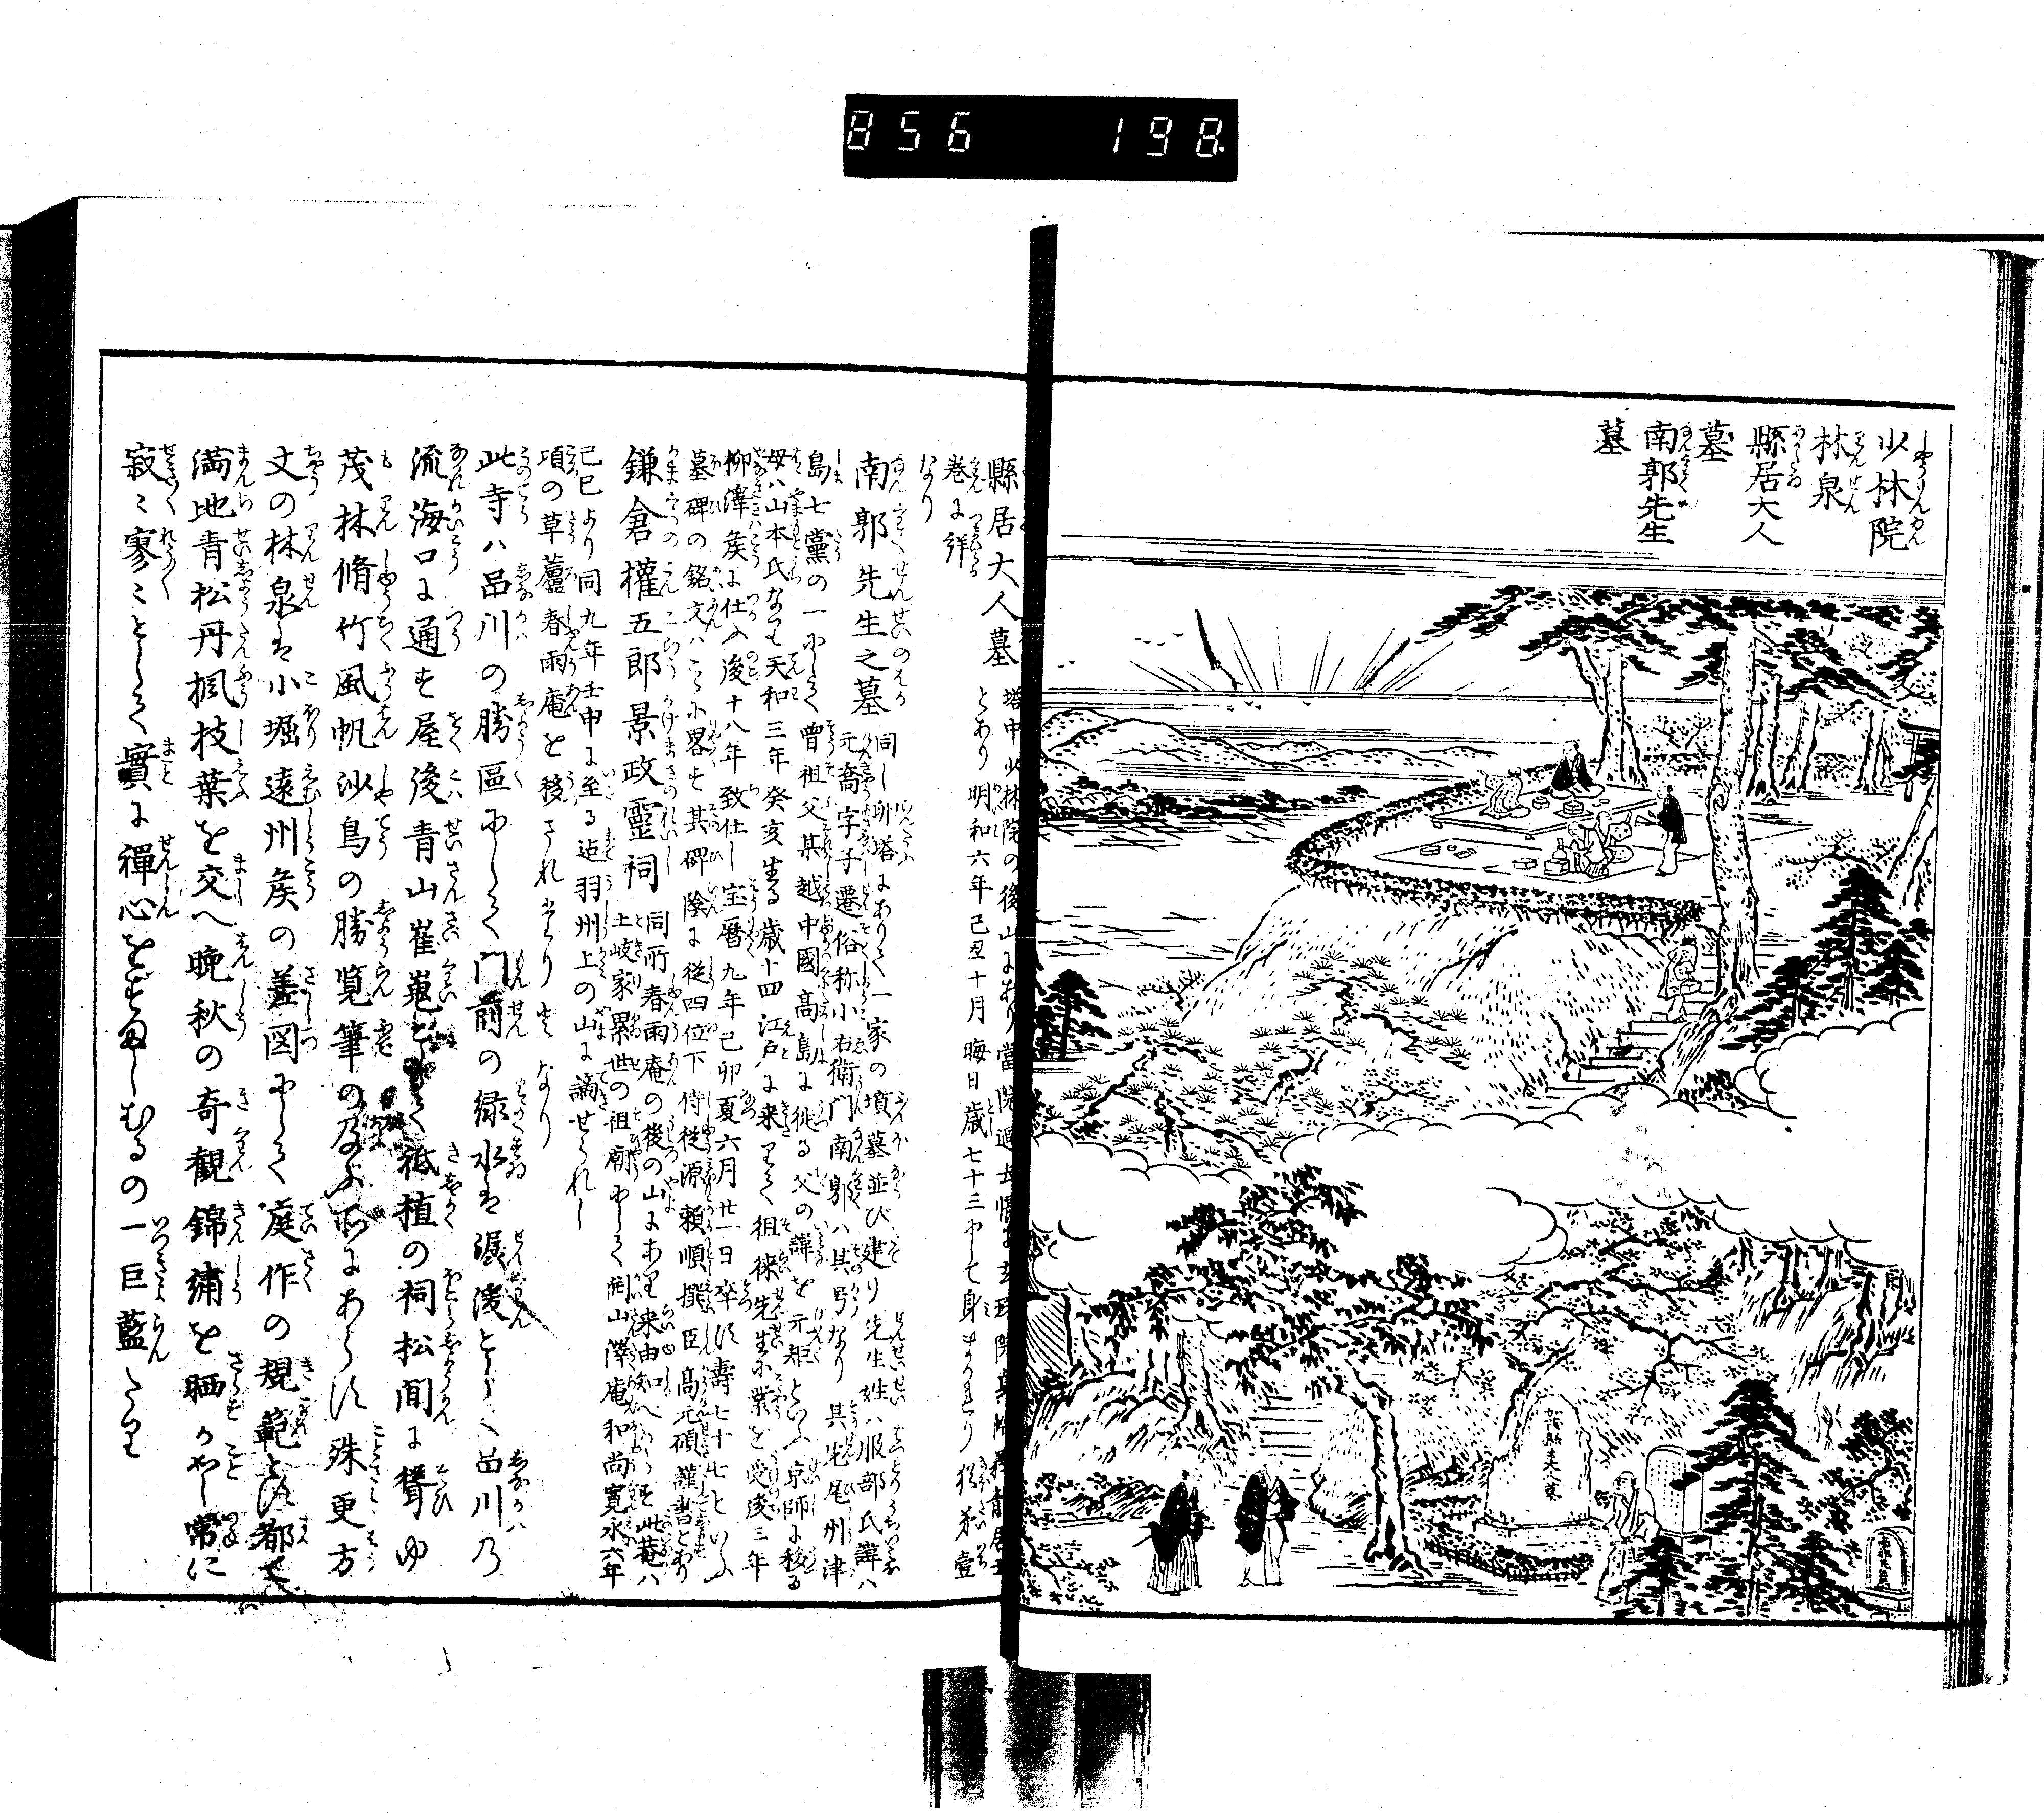 856 198.
少林院
林泉
縣居大人
墓
南郭先生
墓
縣居大人墓
塔中少林院の後山にあり當院過去帳に玄珠院眞
とあり明和六年己丑十月晦日歳七十三にして身まかれり猶第壹
巻に詳
なり
南郭先生之墓
同し卵塔にありて一家の墳墓並び建り先生姓ハ服部氏諱ハ
元喬字子遷俗称小右衛門南郭ハ其号なり其先尾州津
島七黨の一にして曾祖父某越中國高島に徙る父の諱を元矩といふ京師に移る
母ハ山本氏なり天和三年癸亥生る歳十四江戸に来りて徂徠先生に業を受後三年
柳澤矦に仕へ後十八年致仕し宝暦九年己卯夏六月廿一日卒す壽七十七といふ
墓碑の銘文ハこゝに畧す其碑陰に従四位下侍従源頼順撰臣髙元碩謹書とあり
鎌倉權五郎景政靈祠
同所春雨庵の後の山にあり来由
土岐家累世の祖廟にして開山澤庵和尚寛永六年
己巳より同九年壬申に至る迠羽州上の山に謫せられし
頃の草蘆春雨庵を移されたりと なり
此寺ハ品川の勝區にして門前の緑水ハ潺湲として品川乃
流海口に通ず屋後青山崔嵬として祗植の祠松間に聳ゆ
茂林脩竹風帆沙鳥の勝覧筆の及ぶ所にあらず殊更方
丈の林泉ハ小堀遠州矦の差図にして庭作の規範とす都て
満地青松丹楓枝葉を交へ晩秋の奇觀錦繍を晒すかごとし常に
寂〻寥〻として實に禪心をすましむるの一巨藍たり